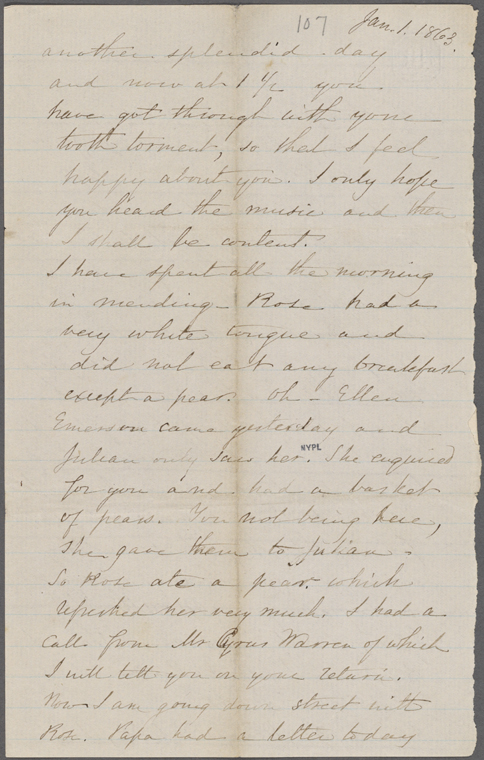 107
Jan. 1. 1863.
another splendid day
and now at 1 1/2 you
have got through with your
tooth torment, so that I feel
happy about you. I only hope
you heard the music and then
I shall be content.
I have spent all the morning
in mending - Rose had a
very white tongue and
did not eat any breakfast
except a pear. Oh - Ellen
Emerson came yesterday and
Julian only saw her. She enquired
NYPL
for you and had a basket
of pears. You not being here,
she gave them to Julian.
So Rose ate a pear which
refreshed her very much. I had a
call from Mr Cyrus Warren of which
I will tell you on your return.
Now I am going down street with
Rose. Papa had a letter today